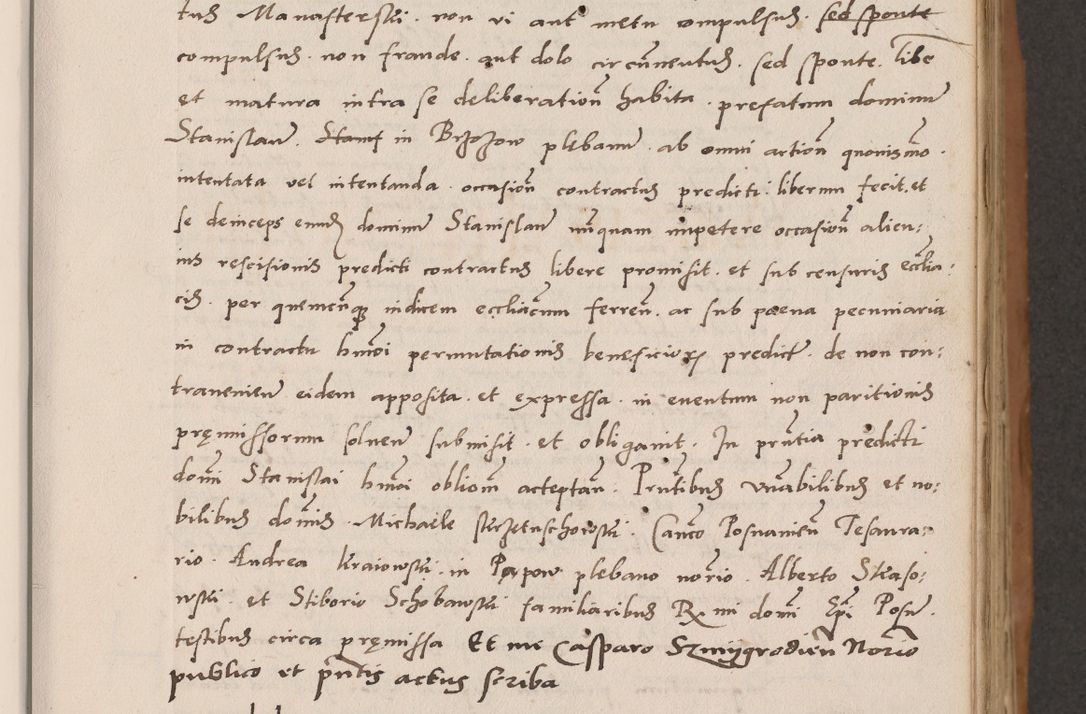 tus Manasterski . non vi aut metu compulsus . sed sponte
compulsus . non fraude . aut dolo circumventus . sed sponte . libe
et matura intra se deliberation habita . prefatum dominum
Stanislaum . Stanis in Brzozow plebanum . ab omni action quovismo .
intentata vel intentanda . occasion contractus predicti . liberum fecit . et
se deinceps eundem dominum Stanislaum nunquam impetere occasion alien:
ius rescisionis predicti contractus libere promisit . et sub censuris ecclia:
cis . per quemcunque iudicem eccliacum ferren . ac sub paena pecuniaria
in contractu hmoi permutationis beneficiorum predict . de non con:
traveniem eidem apposita . et expressa . in eventum non paritionis
premissorum solven submisit . et obligavit . In prntia predicti
domi Stanislai hmoi obliom acceptan . Prntibus Vnabilibus et no:
bilibus domis . Michaele Canco Posnanien Tesaura:
rio . Andrea Kraiowski . in Papow plebano norio . Alberto Straso:
wski . et Stiborio Schobawski familiaribus R mi domi Epi Posn .
testibus circa premissa Et me Casparo Szmygrodien Norio
publico et pntis actus scriba